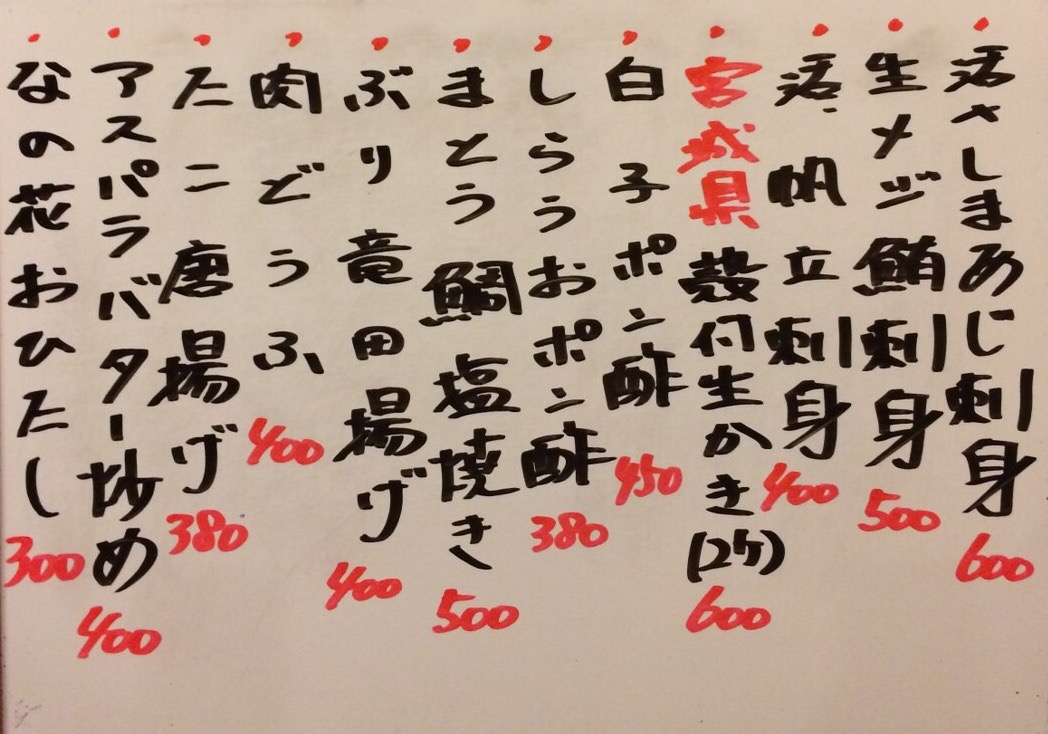 活さしまあじ刺身 600
生メジ鮪刺身 500
活帆立刺身 400
宮城県殻付生かき(2ケ) 600
白子ポン酢 450
しらうおポン酢 380
まとう鯛塩焼き 500
ぶり竜田揚げ 400
肉どうふ 400
たこ唐揚げ 380
アスパラバター炒め 400
なの花おひたし 300